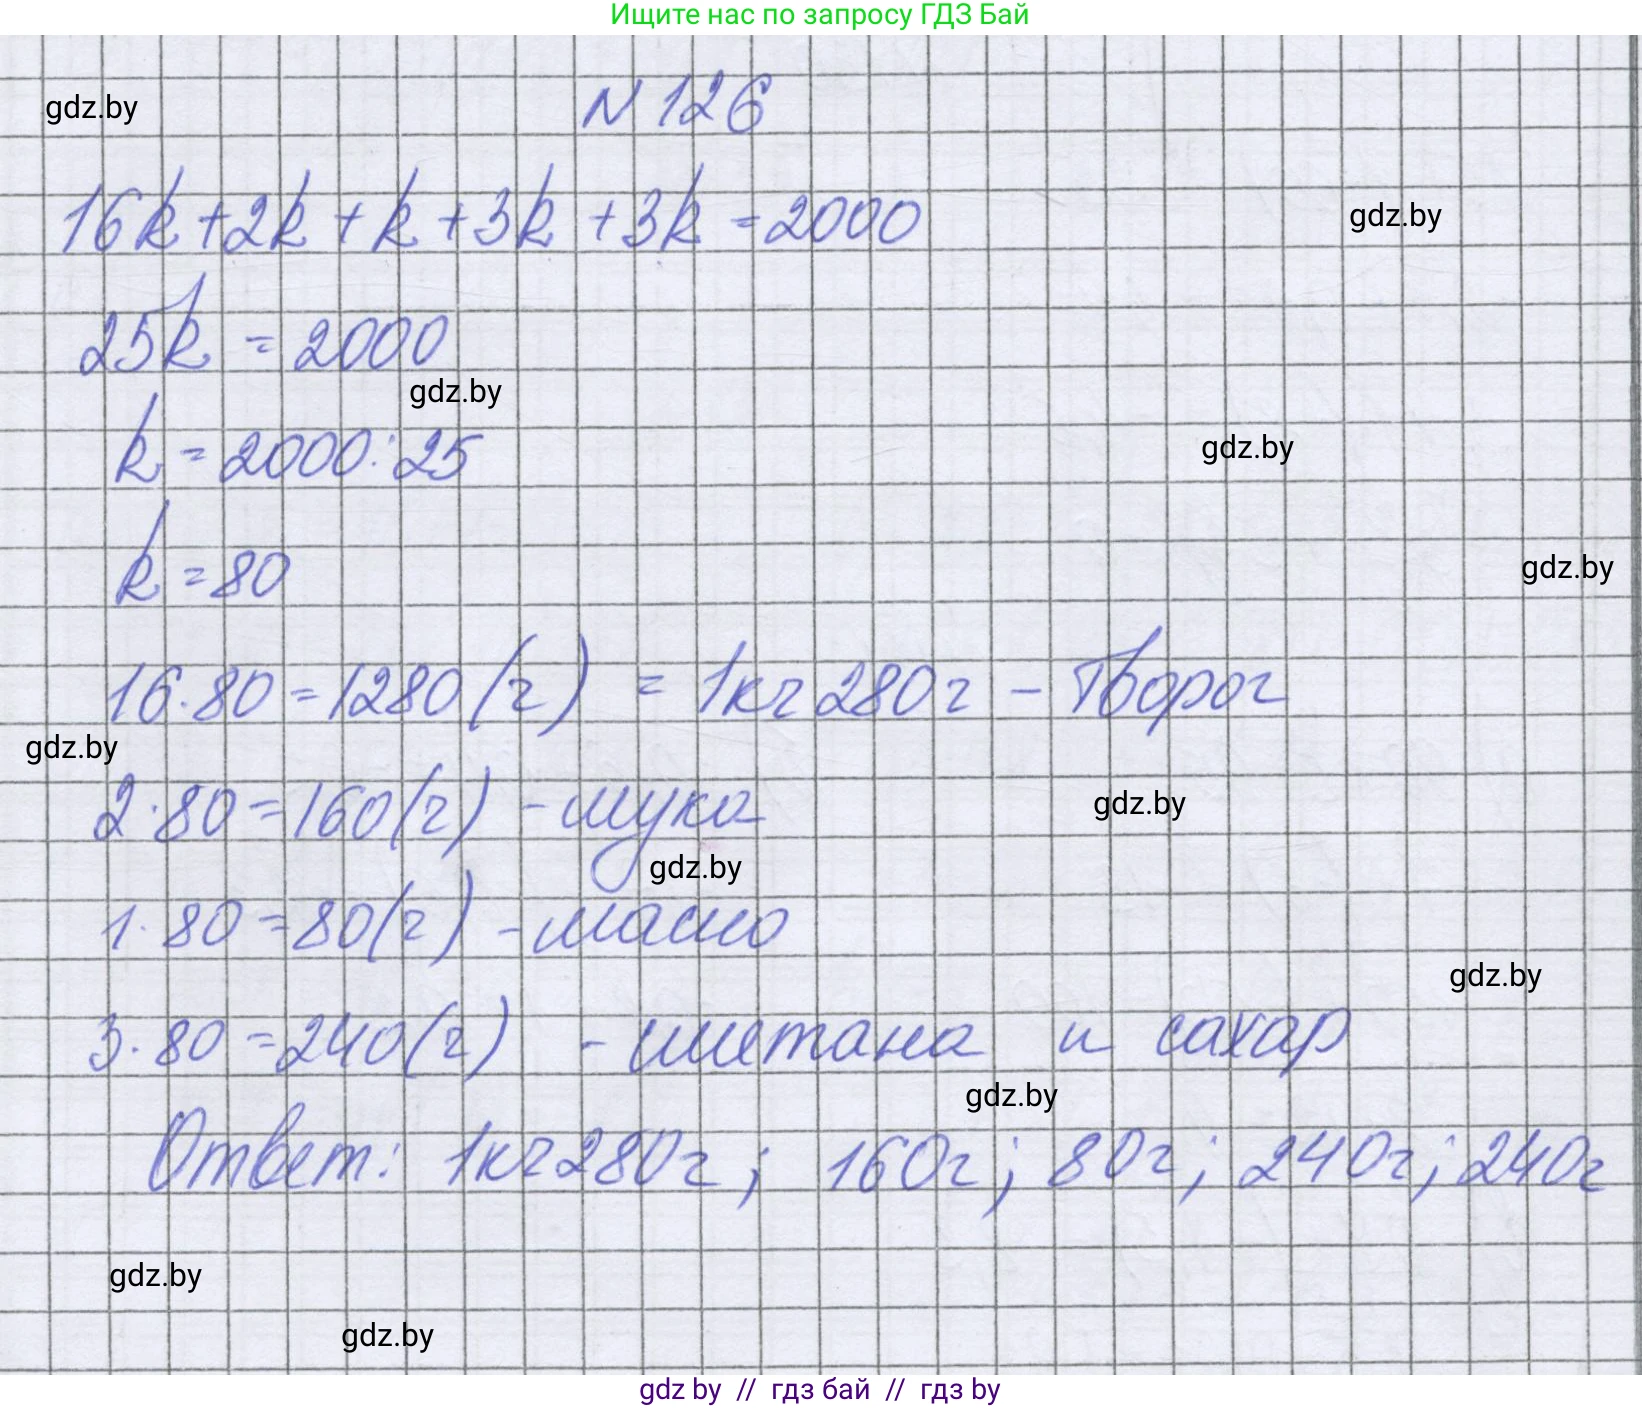 Ищите нас по запросу ГДЗ Бай
gdz.by
N 126
16k+2k+k+3k+3k=2000
gdz.by
25k=2000
gdz.by
k=2000:25
gdz.by
k=80
gdz.by
16·80=1280(г) = 1кг280г - Творог
gdz.by
2·80=160(г) - мука
gdz.by
gdz.by
1·80=80(г) - масло
gdz.by
3·80=240(г) - сметана и сахар
gdz.by
Ответ: 1кг280г; 160г; 80г; 240г; 240г
gdz.by
gdz.by
gdz by // гдз бай // гдз by